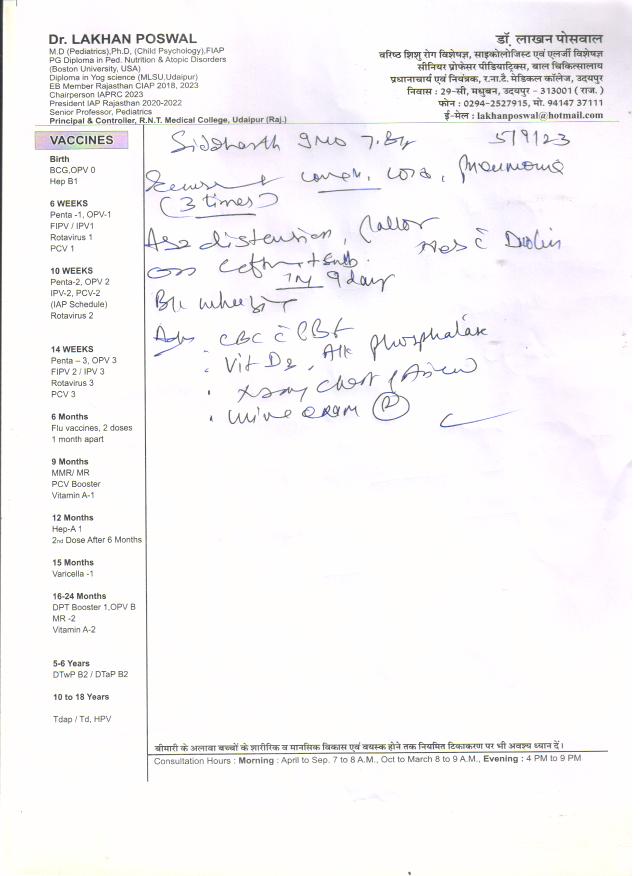 Dr. LAKHAN POSWAL
M.D (Pediatrics),Ph.D, (Child Psychology),FIAP
PG Diploma in Ped. Nutrition & Atopic Disorders
(Boston University, USA)
Diploma in Yog science (MLSU,Udaipur)
EB Member Rajasthan CIAP 2018, 2023
Chairperson IAPRC 2023
President IAP Rajasthan 2020-2022
Senior Professor, Pediatrics
Principal & Controller, R.N.T. Medical College, Udaipur (Raj.)
डॉ. लाखन पोसवाल
वरिष्ठ शिशु रोग विशेषज्ञ, साइकोलोजिस्ट एवं एलर्जी विशेषज्ञ
सीनियर प्रोफेसर पीडियाट्रिक्स, बाल चिकित्सालय
प्रधानाचार्य एवं नियंत्रक, र.ना.टै. मेडिकल कॉलेज, उदयपुर
निवास : 29-सी, मधुबन, उदयपुर - 313001 ( राज. )
फोन : 0294-2527915, मो. 94147 37111
ई-मेल : lakhanposwal@hotmail.com
VACCINES
Birth
BCG,OPV 0
Hep B1
6 WEEKS
Penta -1, OPV-1
FIPV / IPV1
Rotavirus 1
PCV 1
10 WEEKS
Penta-2, OPV 2
IPV-2, PCV-2
(IAP Schedule)
Rotavirus 2
14 WEEKS
Penta – 3, OPV 3
FIPV 2 / IPV 3
Rotavirus 3
PCV 3
6 Months
Flu vaccines, 2 doses
1 month apart
9 Months
MMR/ MR
PCV Booster
Vitamin A-1
12 Months
Hep-A 1
2nd Dose After 6 Months
15 Months
Varicella -1
16-24 Months
DPT Booster 1,OPV B
MR -2
Vitamin A-2
5-6 Years
DTwP B2 / DTaP B2
10 to 18 Years
Tdap / Td, HPV
Siddharth 9mo 5/9/23
Pneumonia
(3 times)
distension, Pallor
9 day
CBC c PBF
Vit D3, Alk phosphatase
Xray chest
urine exam
बीमारी के अलावा बच्चों के शारीरिक व मानसिक विकास एवं वयस्क होने तक नियमित टिकाकरण पर भी अवश्य ध्यान दें।
Consultation Hours : Morning : April to Sep. 7 to 8 A.M., Oct to March 8 to 9 A.M., Evening : 4 PM to 9 PM